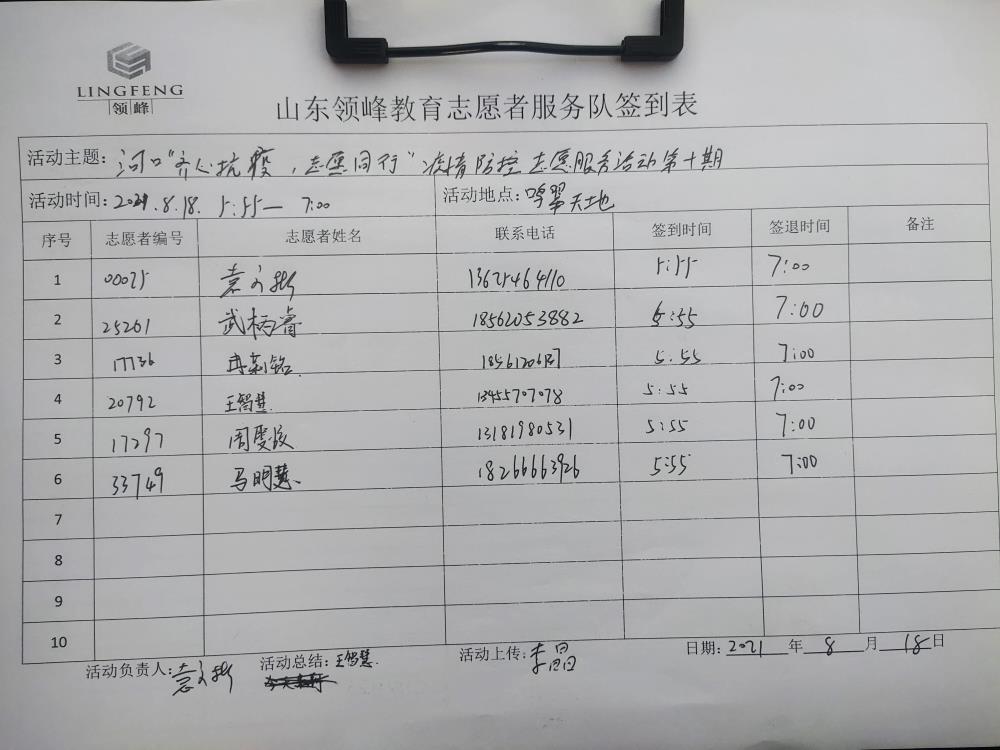 LINGFENG
领峰
山东领峰教育志愿者服务队签到表
活动主题：河口"齐心抗疫，志愿同行"疫情防控志愿服务活动第十期
活动时间：2021.8.18. 5:55— 7:00 活动地点：鸣翠天地
序号 志愿者编号 志愿者姓名 联系电话 签到时间 签退时间 备注
1 00025 13625464110 5:55 7:00
2 25261 武柄睿 18562053882 5:55 7:00
3 17736 5.55 7:00
4 20792 王智慧. 13455707078 5:55 7:00
5 17297 13181980531 5:55 7:00
6 33749 马明慧. 18266663926 5:55 7:00
7
8
9
10
活动负责人： 活动总结：王智慧. 活动上传：李昌 日期：2021年8月18日